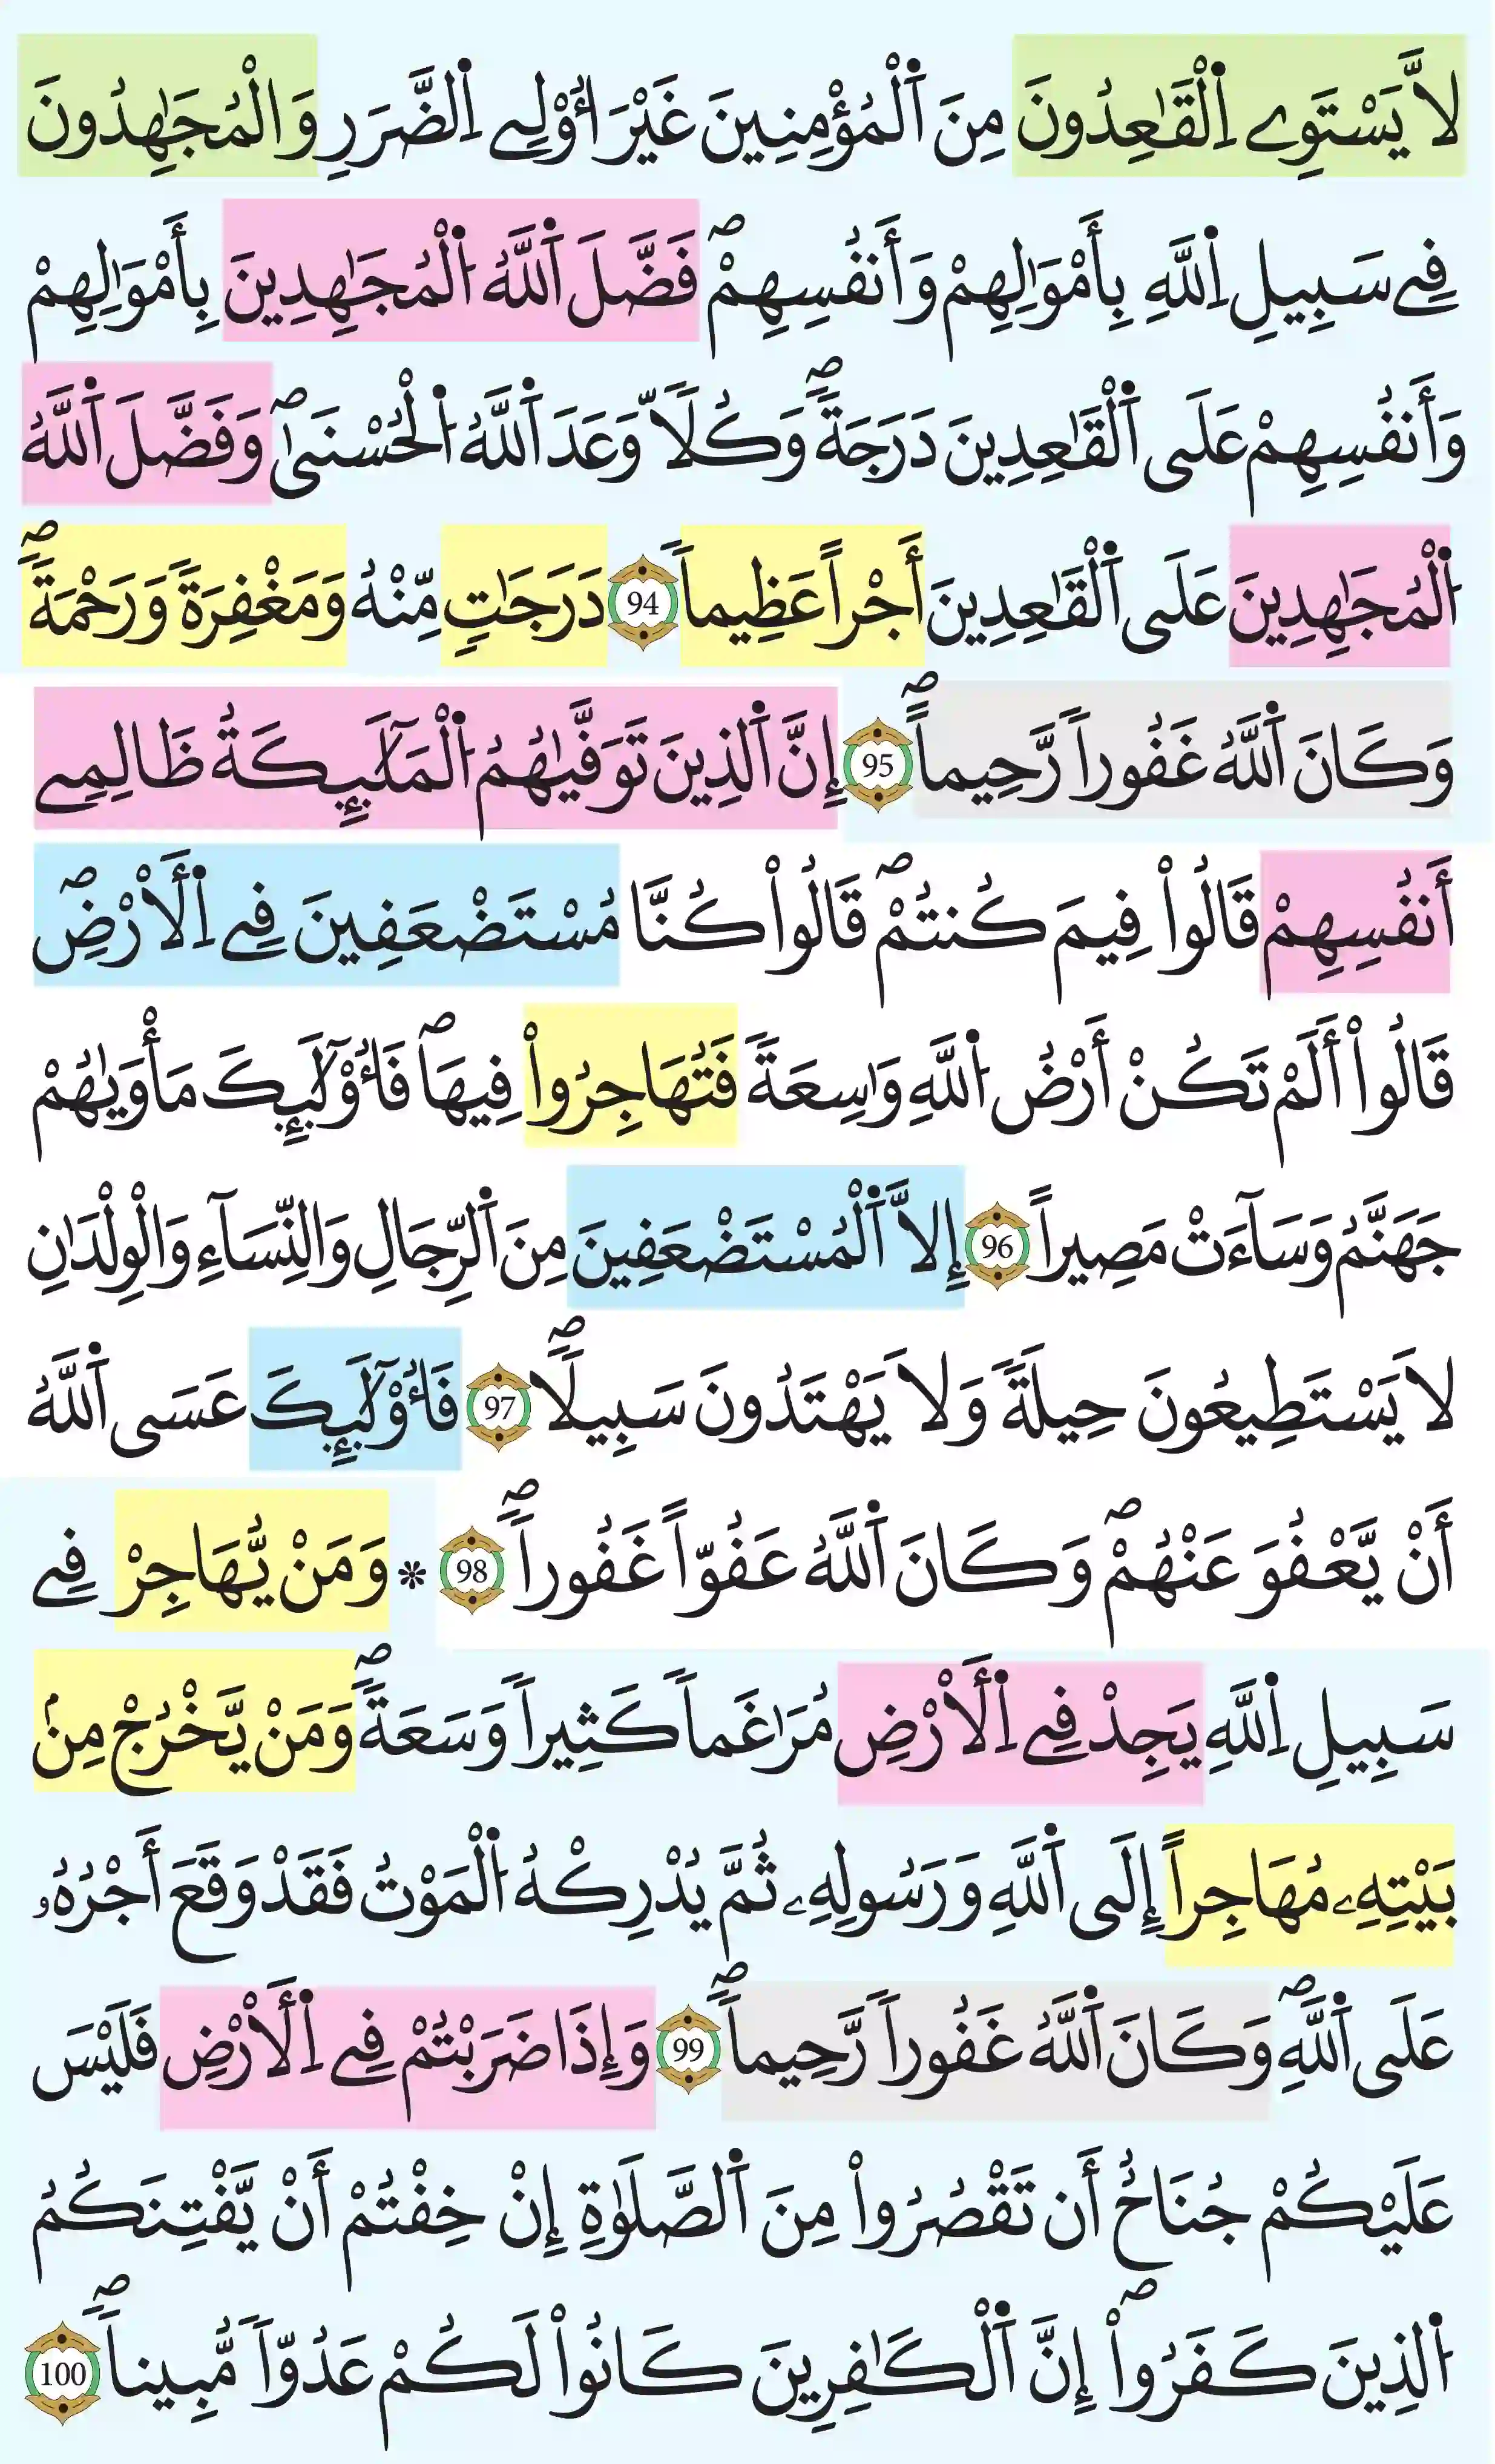 لَّا يَسْتَوِے اِ۬لْقَٰعِدُونَ مِنَ اَ۬لْمُؤْمِنِينَ غَيْرَ أُوْلِے اِ۬لضَّرَرِ وَالْمُجَٰهِدُونَ
فِے سَبِيلِ اِ۬للَّهِ بِأَمْوَٰلِهِمْ وَأَنفُسِهِمْۖ فَضَّلَ اَ۬للَّهُ اُ۬لْمُجَٰهِدِينَ بِأَمْوَٰلِهِمْ
وَأَنفُسِهِمْ عَلَي اَ۬لْقَٰعِدِينَ دَرَجَةٗۖ وَكُلّاٗ وَعَدَ اَ۬للَّهُ اُ۬لْحُسْنَيٰۖ وَفَضَّلَ اَ۬للَّهُ
اُ۬لْمُجَٰهِدِينَ عَلَي اَ۬لْقَٰعِدِينَ أَجْراً عَظِيماٗ 94 دَرَجَٰتٖ مِّنْهُ وَمَغْفِرَةٗ وَرَحْمَةٗۖ
وَكَانَ اَ۬للَّهُ غَفُوراٗ رَّحِيماًۖ 95 إِنَّ اَ۬لذِينَ تَوَفَّيٰهُمُ اُ۬لْمَلَٰٓئِكَةُ ظَالِمِے
أَنفُسِهِمْ قَالُواْ فِيمَ كُنتُمْۖ قَالُواْ كُنَّا مُسْتَضْعَفِينَ فِے اِ۬لَارْضِۖ
قَالُواْ أَلَمْ تَكُنْ أَرْضُ اُ۬للَّهِ وَٰسِعَةٗ فَتُهَاجِرُواْ فِيهَاۖ فَأُوْلَٰٓئِكَ مَأْوَيٰهُمْ
جَهَنَّمُ وَسَآءَتْ مَصِيراً 96 إِلَّا اَ۬لْمُسْتَضْعَفِينَ مِنَ اَ۬لرِّجَالِ وَالنِّسَآءِ وَالْوِلْدَٰنِ
لَا يَسْتَطِيعُونَ حِيلَةٗ وَلَا يَهْتَدُونَ سَبِيلاٗۖ 97 فَأُوْلَٰٓئِكَ عَسَي اَ۬للَّهُ
أَنْ يَّعْفُوَ عَنْهُمْۖ وَكَانَ اَ۬للَّهُ عَفُوّاً غَفُوراٗۖ 98 * وَمَنْ يُّهَاجِرْ فِے
سَبِيلِ اِ۬للَّهِ يَجِدْ فِے اِ۬لَارْضِ مُرَٰغَماٗ كَثِيراٗ وَسَعَةٗۖ وَمَنْ يَّخْرُجْ مِنۢ
بَيْتِهِۦ مُهَاجِراً إِلَي اَ۬للَّهِ وَرَسُولِهِۦ ثُمَّ يُدْرِكْهُ اُ۬لْمَوْتُ فَقَدْ وَقَعَ أَجْرُهُۥ
عَلَي اَ۬للَّهِۖ وَكَانَ اَ۬للَّهُ غَفُوراٗ رَّحِيماٗۖ 99 وَإِذَا ضَرَبْتُمْ فِے اِ۬لَارْضِ فَلَيْسَ
عَلَيْكُمْ جُنَاحٌ أَن تَقْصُرُواْ مِنَ اَ۬لصَّلَوٰةِ إِنْ خِفْتُمْ أَنْ يَّفْتِنَكُمُ
اُ۬لذِينَ كَفَرُواْۖ إِنَّ اَ۬لْكَٰفِرِينَ كَانُواْ لَكُمْ عَدُوّاٗ مُّبِيناٗۖ 100